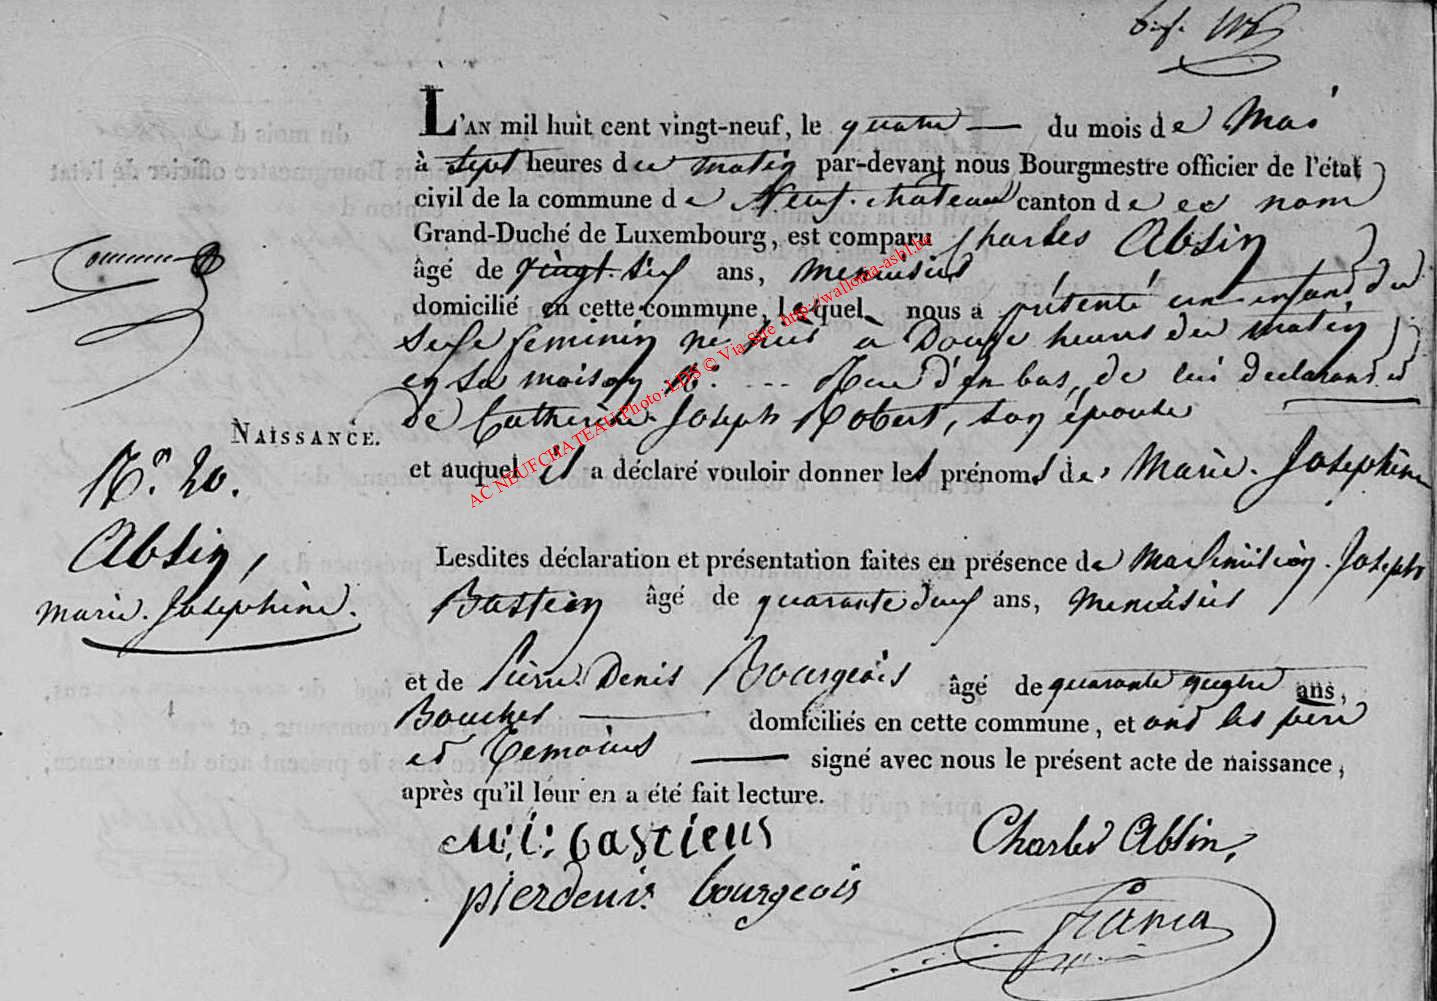 L'AN mil huit cent vingt-neuf, le quatre — du mois de Mai
à sept heures du matin par-devant nous Bourgmestre officier de l'état
civil de la commune de Neufchateau canton de ce nom
Grand-Duché de Luxembourg, est comparu Charles Absin
âgé de vingt-six ans, menuisier
domicilié en cette commune, lequel nous a présenté un enfant du
sexe feminin né hier a Douze heures du matin
en sa maison N°: --- Rue d'en bas, de lui declarant et
de Catherine Joseph Robert, son épouse
NAISSANCE.
et auquel il a déclaré vouloir donner les prénoms de Marie-Josephine
N°. 20.
Absin,
Marie-Josephine.
Lesdites déclaration et présentation faites en présence de Maximilien-Joseph
Bastien âgé de quarante deux ans, menuisier
et de Pierre Denis Bourgeois âgé de quarante quatre ans,
Boucher — domiciliés en cette commune, et ont les père
et Temoins — signé avec nous le présent acte de naissance,
après qu'il leur en a été fait lecture.
M: J: bastiens
Charles Absin,
pierdenis bourgeois
AC NEUFCHATEAU Photo: LDS © Via Site http://wallonia-asbl.be